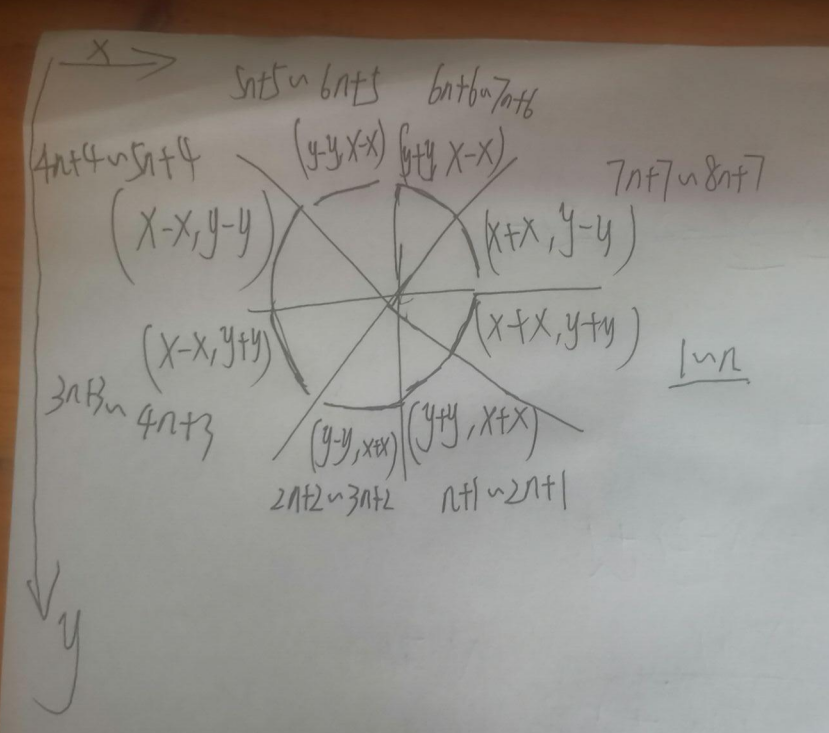 x
5n+5~6n+5 6n+6~7n+6
4n+4~5n+4 (y-y, x-x) (y+y, x-x) 7n+7~8n+7
(x-x, y-y) (x+x, y-y)
(x-x, y+y) (x+x, y+y)
1~n
3n+3~
4n+3 (y-y, x+x) (y+y, x+x)
2n+2~3n+2 n+1~2n+1
y